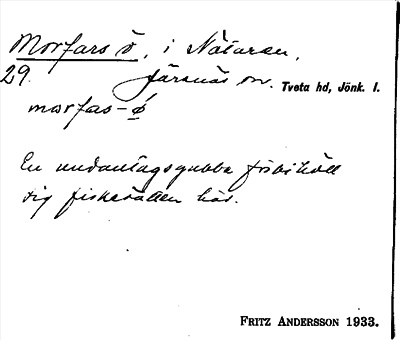 Morfars ö, i Nätaren,
29. Järsnäs sn. Tveta hd, Jönk. l.
morfas-ø̀
En undantagsgubbe förbihöll
sig fiskerätten här.
FRITZ ANDERSSON 1933.